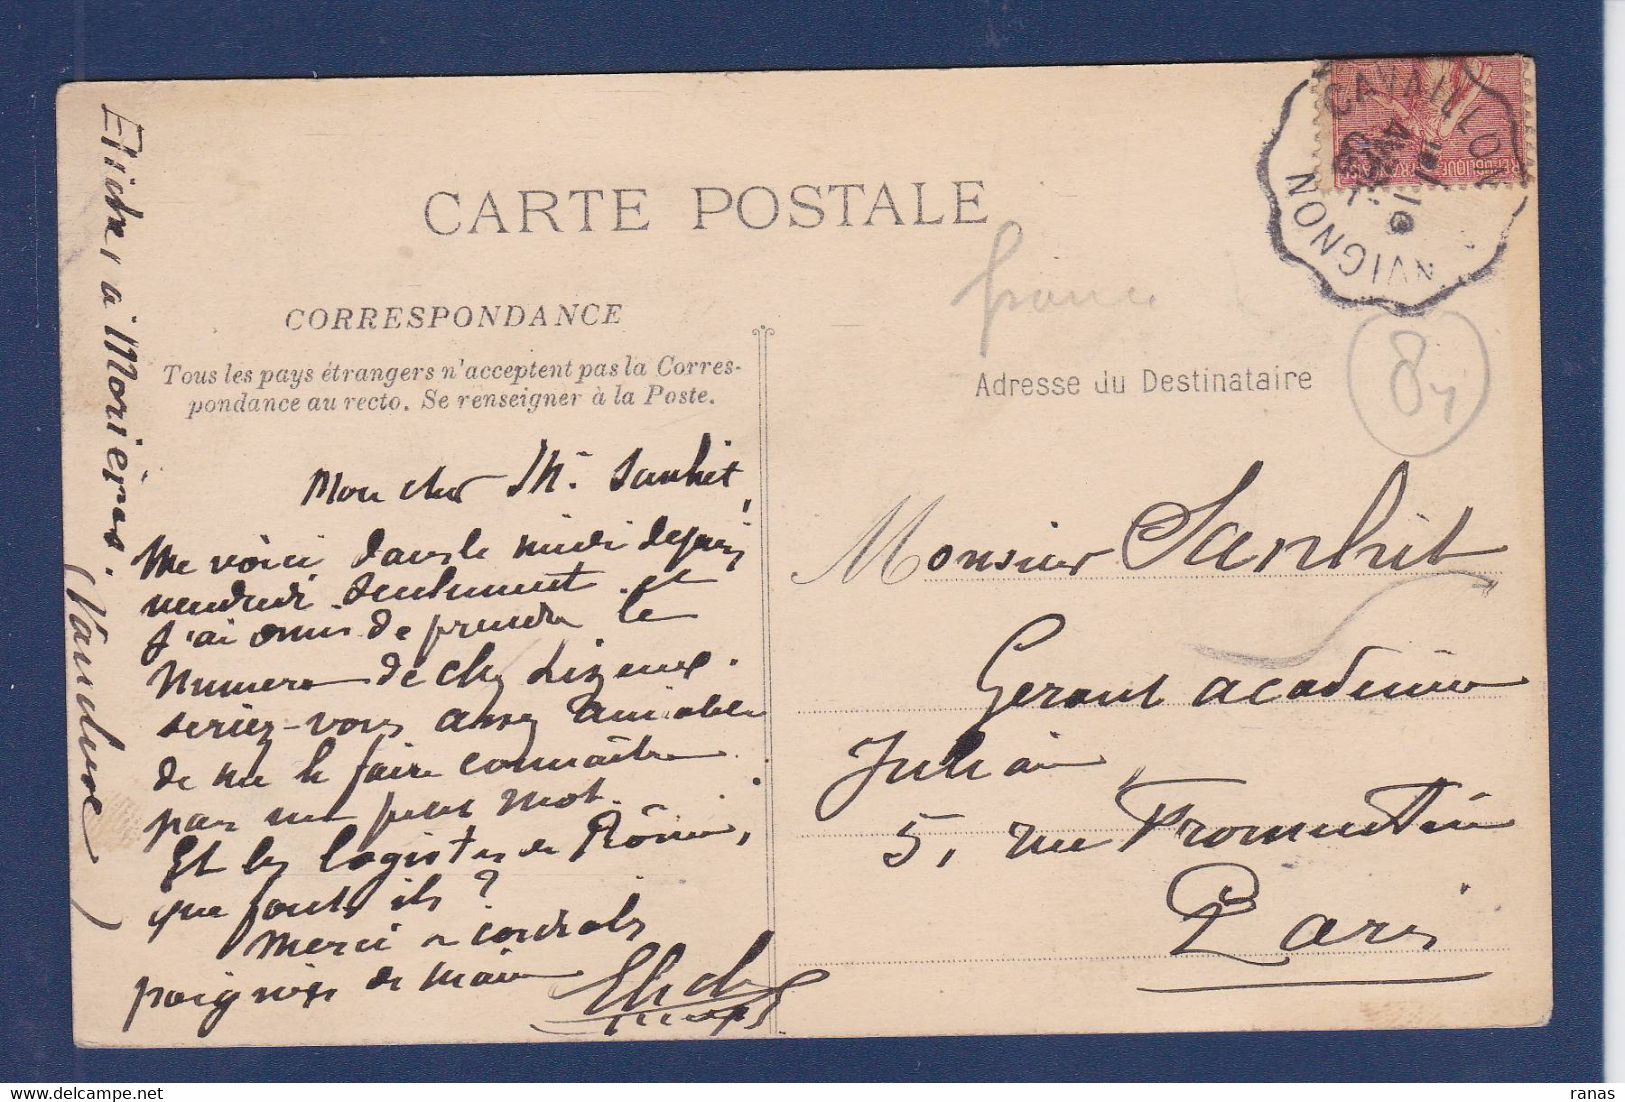 CARTE POSTALE
CORRESPONDANCE
Tous les pays étrangers n'acceptent pas la Corres-
pondance au recto. Se renseigner à la Poste.
Adresse du Destinataire
CAVAILLON
AVIGNON
RÉPUBLIQUE FRANÇAISE
france
84
Mon cher M. Sanhit,
Me voici dans le midi depuis
vendredi seulement. et
J'ai omis de prendre le
Numero de chez Lizeux.
seriez-vous assez aimable
de me le faire connaître
par un petit mot.
Et les logistes de Rome,
que font ils ?
Merci et cordiale
poignée de main
à Morières.
(Vaucluse)
Monsieur Sanhit
Gerant académie
Julian
5, rue Fromentin
Paris
ranas